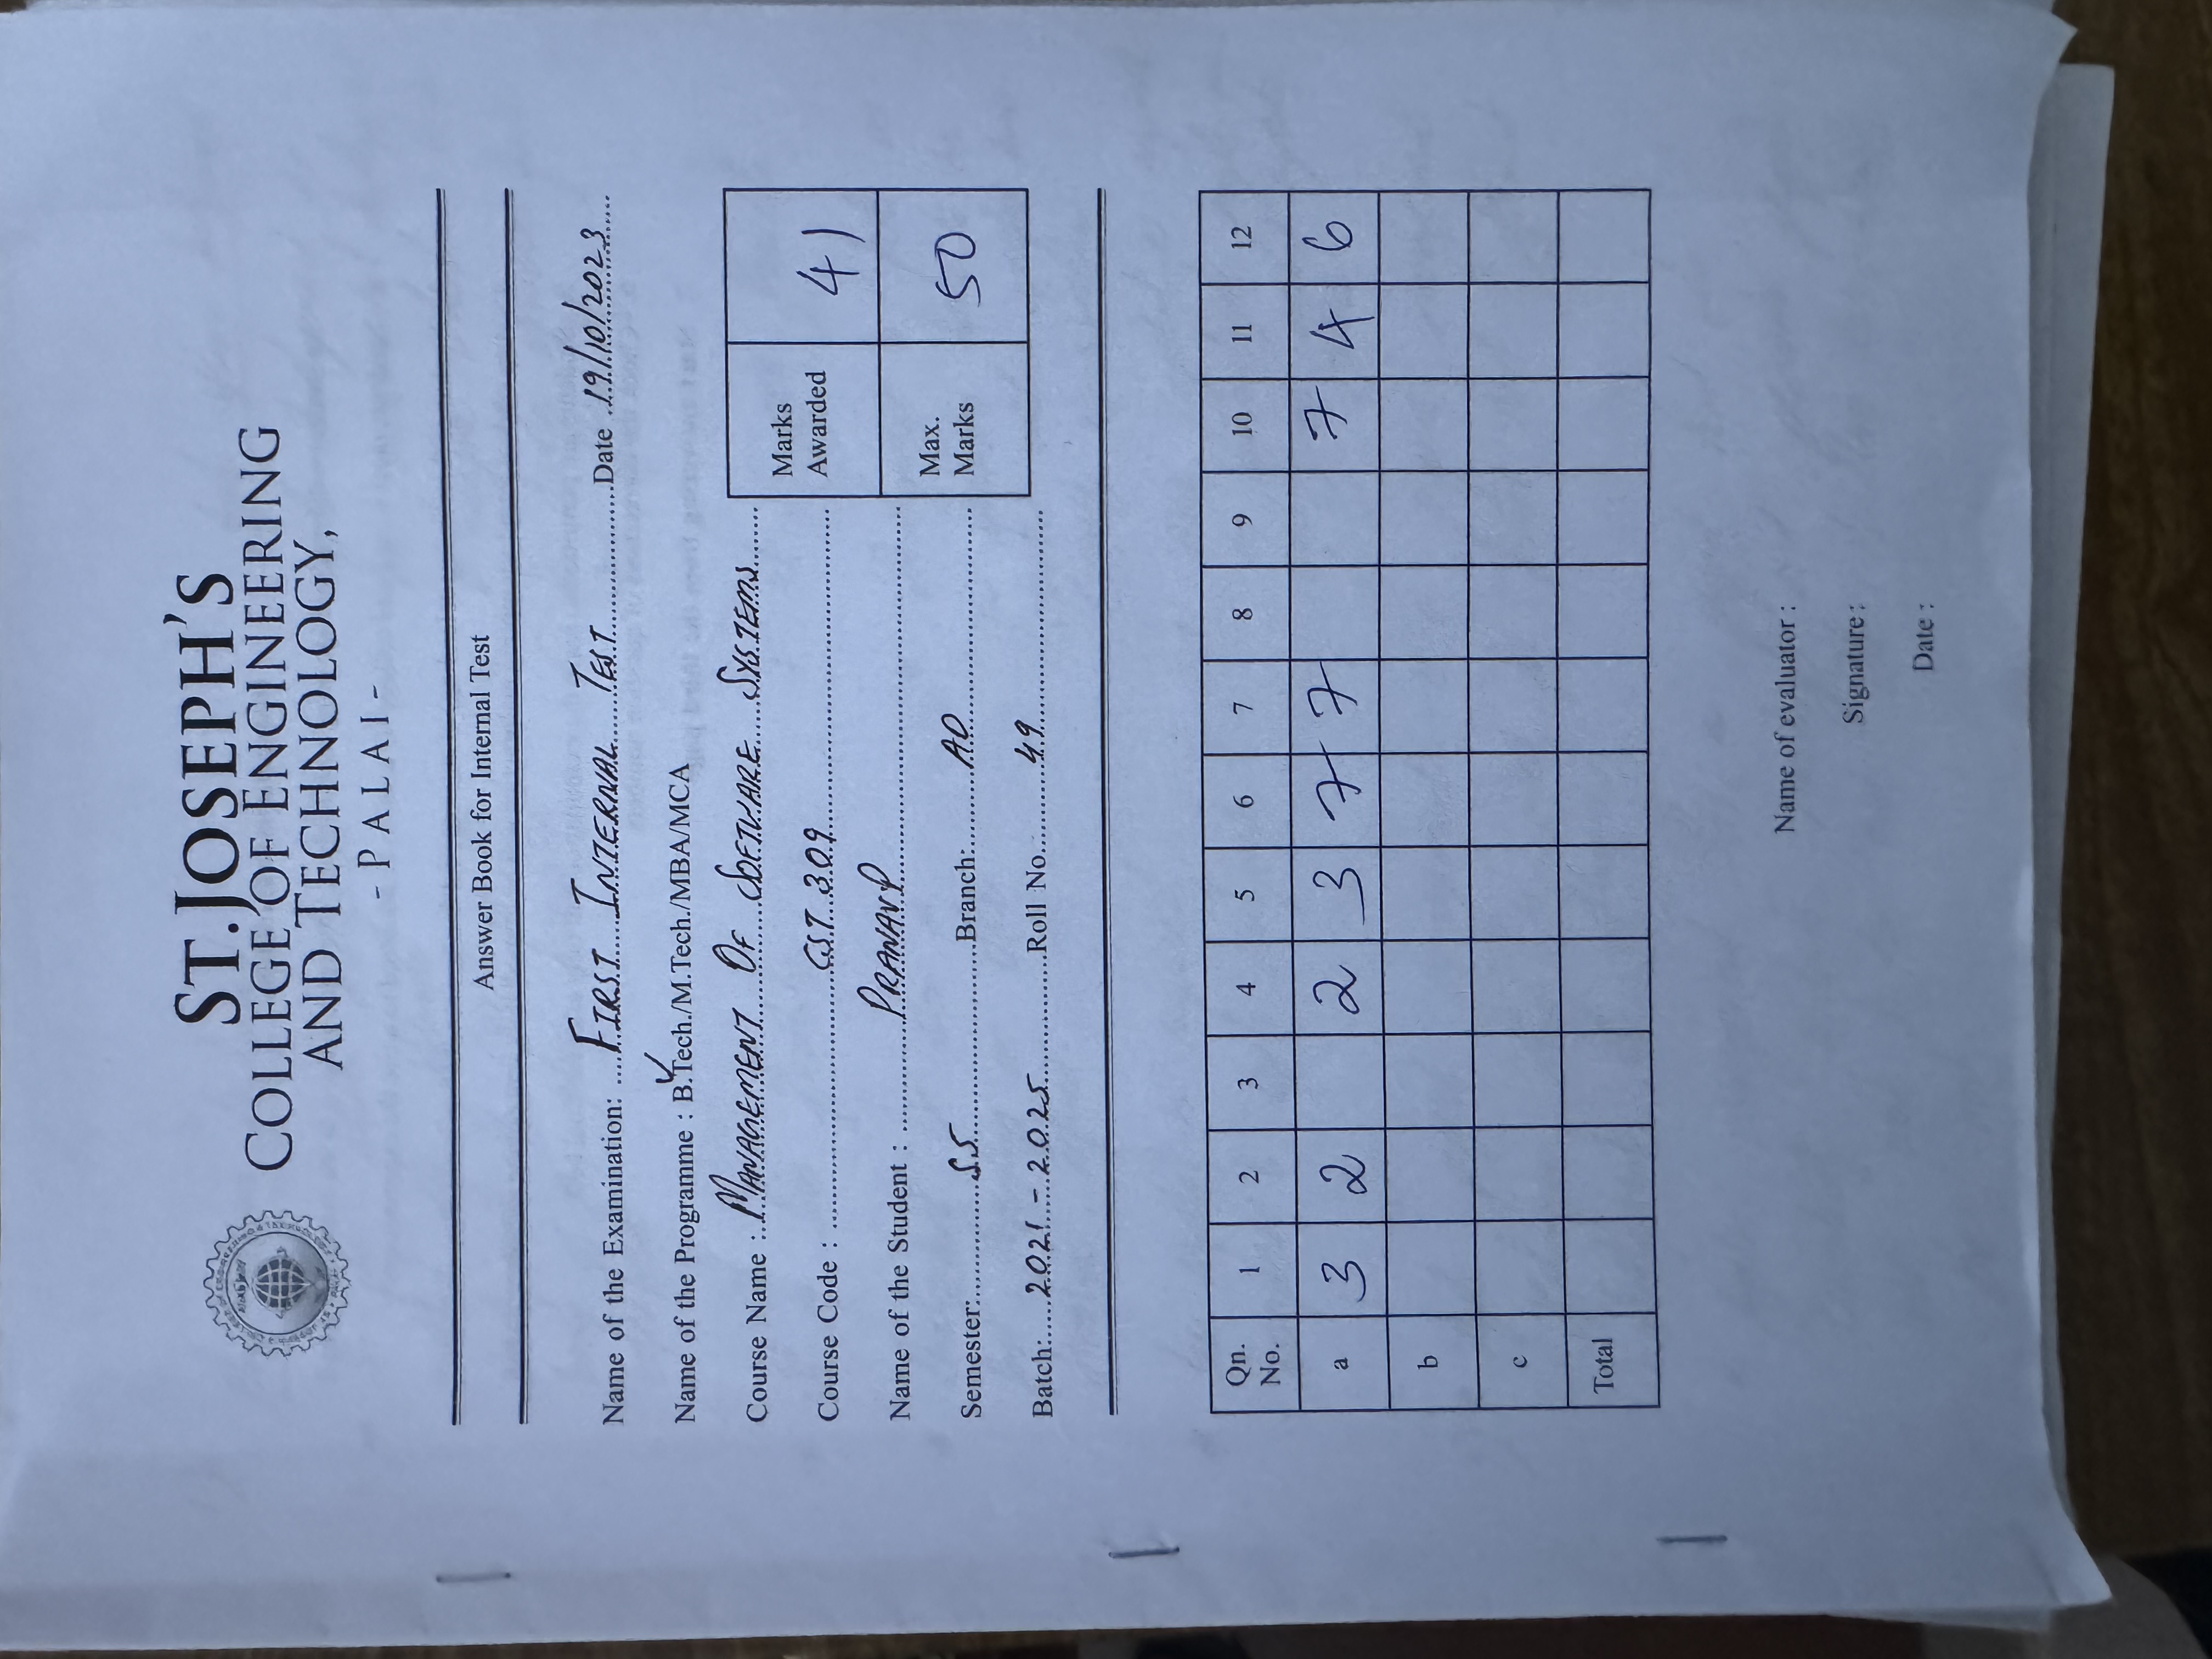 ST.JOSEPH'S
COLLEGE OF ENGINEERING
AND TECHNOLOGY,
- PALAI -
Answer Book for Internal Test
Name of the Examination: FIRST INTERNAL TEST Date 19/10/2023
Name of the Programme : B.Tech./M.Tech./MBA/MCA
Course Name : MANAGEMENT OF SOFTWARE SYSTEMS
Marks Awarded 41
Course Code : CST 309
Name of the Student : PRANAV P
Max. Marks 50
Semester: S5 Branch: AD
Batch: 2021 - 2025 Roll No. 49
Qn. No. 1 2 3 4 5 6 7 8 9 10 11 12
a 3 2 2 3 7 7 7 4 6
b
c
Total
Name of evaluator :
Signature :
Date :